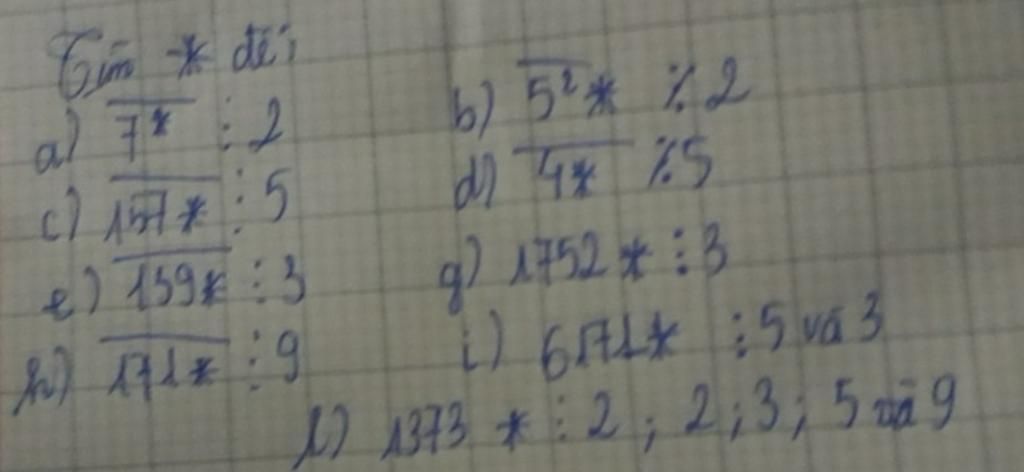 Tìm * để:
a) 7* ⋮ 2 b) 52* ⋮̸ 2
c) 157* ⋮ 5 d) 4* ⋮̸ 5
e) 139* ⋮ 3 g) 1752* ⋮ 3
h) 171* ⋮ 9 i) 6171* ⋮ 5 và 3
l) 1373 * ⋮ 2 ; 2 ; 3 ; 5 và 9